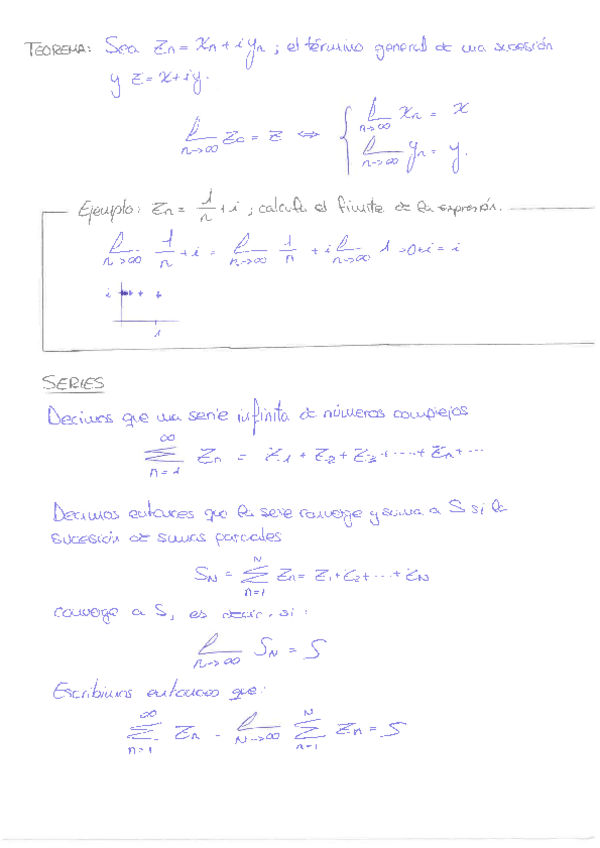 TEOREMA: Sea Zn = Xn + i yn ; el término general de una sucesión
y z = x + iy.
l Zn = z ⇔ { l Xn = x
n→∞ n→∞
l yn = y.
n→∞
Ejemplo: Zn = 1/n + i ; calcula el límite de la expresión.
l 1/n + i = l 1/n + i l 1 = 0 + i = i
n→∞ n→∞ n→∞
i
1
SERIES
Decimos que una serie infinita de números complejos
∞
Σ Zn = Z1 + Z2 + Z3 + ... + Zn + ...
n=1
Decimos entonces que la serie converge y suma a S si la
sucesión de sumas parciales
N
SN = Σ Zn = Z1 + Z2 + ... + ZN
n=1
converge a S, es decir, si:
l SN = S
n→∞
Escribimos entonces que:
∞ N
Σ Zn = l Σ Zn = S
n=1 N→∞ n=1